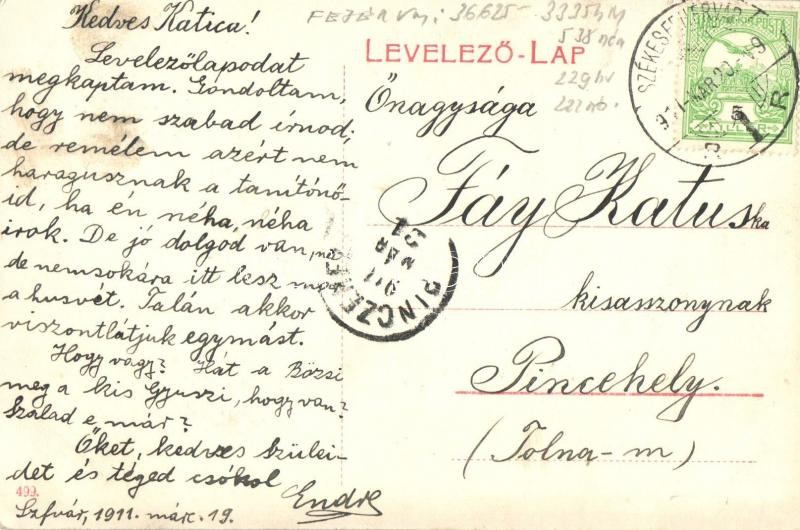 Kedves Katica!
Levelezőlapodat
megkaptam. Gondoltam,
hogy nem szabad írnod,
de remélem azért nem
haragusznak a tanítónő-
id, ha én néha, néha
irok. De jó dolgod van,
de nemsokára itt lesz
a husvét. Talán akkor
viszontlátjuk egymást.
Hogy vagy? Hát a Bözsi
meg a kis Gyuszi, hogy van?
Szalad e már?
Őket, kedves Szülei-
det és téged csókol
Endre
499.
Szfvár, 1911. márc. 19.
FEJÉR 36625 - 3335
538
229
LEVELEZŐ-LAP
Önagysága
Fáy Katuska
kisasszonynak
Pincehely.
(Tolna-m)
SZÉKESFEHÉRVÁR
911 MAR 20
PINCZEHELY
911 MAR 21